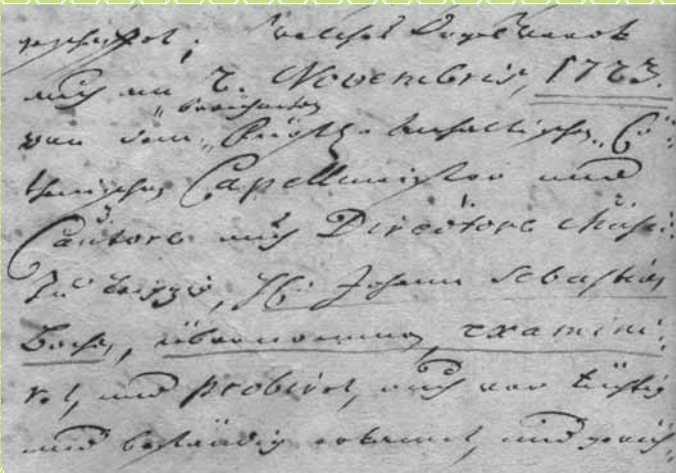 geschaffet; welches Orgelwerck
auch am 2. Novembris, 1723.
berühmten
von dem Fürstl. Anhaltischen Cö-
thenischen Capellmeister und
Cantore auch Directore Music:
zu Leipzig, H: Johann Sebastian
Bachen, übernommen, examini-
ret, und probiret, auch vor tüchtig
und beständig erkannt, und gerüh-